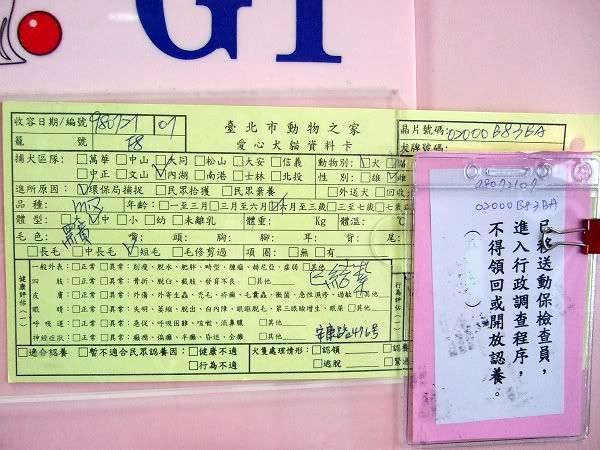 GI
收容日期/編號 980721 07
籠 號 F8
臺北市動物之家
愛心犬貓資料卡
晶片號碼: 02000B83BA
犬牌號碼:
捕犬區隊: □萬華 □中山 大同 □松山 □大安 □信義
□中正 □文山 內湖 □南港 □士林 □北投
動物別: 犬
性 別: 雄
進所原因: 環保局捕捉 □民眾拾獲 □民眾棄養 □外送犬 □回收
品種: 年齡: □一至三月 □三月至六月 □三至七歲
體型: □大 中 □小 □幼 □未離乳 體重: Kg 體溫: ℃
毛色: 黑黃 嘴: 頭: 胸: 腳: 耳: 背: 尾:
□長毛 □中長毛 短毛 □毛修剪過 項圈: □無 □有
健康評估(一)
一般外表: □正常 □異常: 削瘦、脫水、肥胖、畸型、腫瘤、赫尼亞、虛弱 □其他
四 肢: □正常 □異常: 骨折、脫臼、截肢、發育不良 □其他
皮 膚: □正常 □異常: 外傷、外寄生蟲、禿毛、疥癬、毛囊蟲、黴菌、急性濕疹、過敏 □其他
眼 睛: □正常 □異常: 失明、萎縮、脫出、白內障、眼瞼脫毛、第三眼瞼增生、眼屎 □其他
呼吸道: □正常 □異常: 急促、呼吸困難、咳嗽、流鼻膿 □其他
神經症狀: □正常 □異常: 癲癇、偏癱、半癱、昏迷、全癱 □其他
已結紮
安康路496號
行為評估(一)
□適合認養 □暫不適合民眾認養因: □健康不適
□行為不適
犬隻處理情形: □認領
□逃脫
98072107
02000B83BA
已移送動保檢查員,
進入行政調查程序,
不得領回或開放認養。
( )